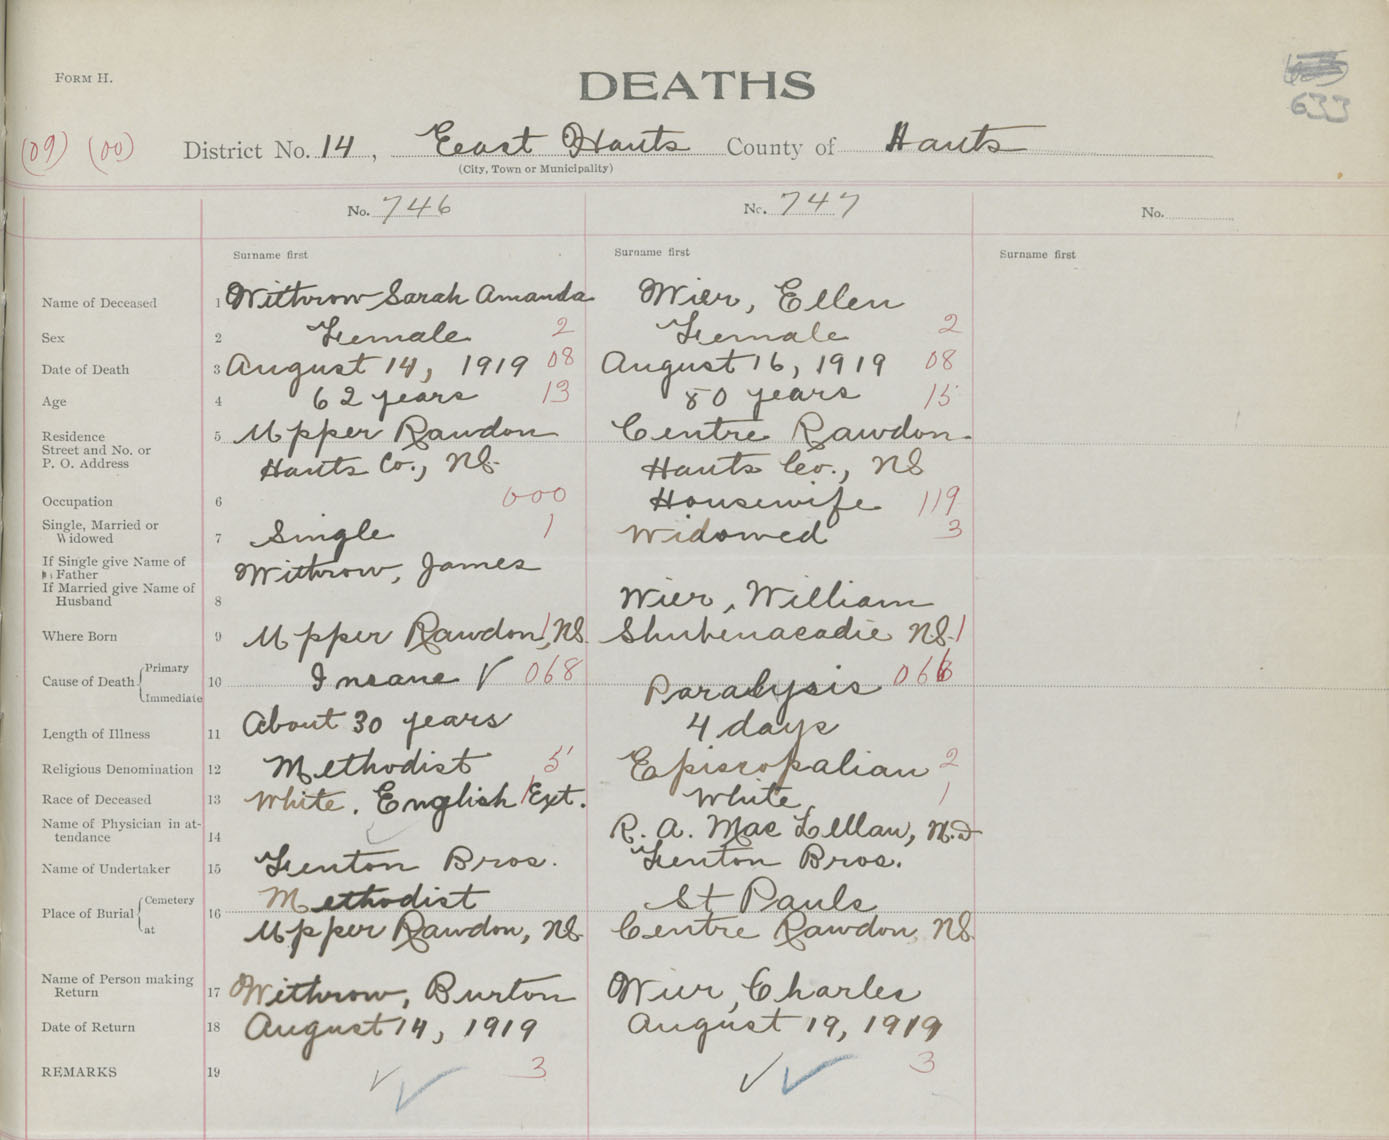 FORM H.
DEATHS
633
(09) (00) District No. 14, East Hants County of Hants
(City, Town or Municipality)
No. 746 No. 747 No.
Surname first Surname first Surname first
Name of Deceased 1 Withrow Sarah Amanda Wier, Ellen
Sex 2 Female 2 Female 2
Date of Death 3 August 14, 1919 08 August 16, 1919 08
Age 4 62 years 13 80 years 15
Residence 5 Upper Rawdon Centre Rawdon.
Street and No. or
P. O. Address Hants Co., NS. Hants Co., NS
Occupation 6 000 Housewife 119
Single, Married or
Widowed 7 Single 1 Widowed 3
If Single give Name of
Father Withrow, James
If Married give Name of
Husband 8 Wier, William
Where Born 9 Upper Rawdon, NS 1 Shubenacadie NS. 1
Cause of Death Primary 10 Insane ✓ 068 Paralysis 066
Immediate
Length of Illness 11 About 30 years 4 days
Religious Denomination 12 Methodist 5 Episcopalian 2
Race of Deceased 13 White. English 1 Ext. White 1
Name of Physician in at-
tendance 14 R. A. MacLellan, M.D
Name of Undertaker 15 Fenton Bros. Fenton Bros.
Place of Burial Cemetery 16 Methodist St Pauls
at Upper Rawdon, NS. Centre Rawdon, NS.
Name of Person making
Return 17 Withrow, Burton Wier, Charles
Date of Return 18 August 14, 1919 August 19, 1919
REMARKS 19 ✓ ✓ 3 ✓ ✓ 3